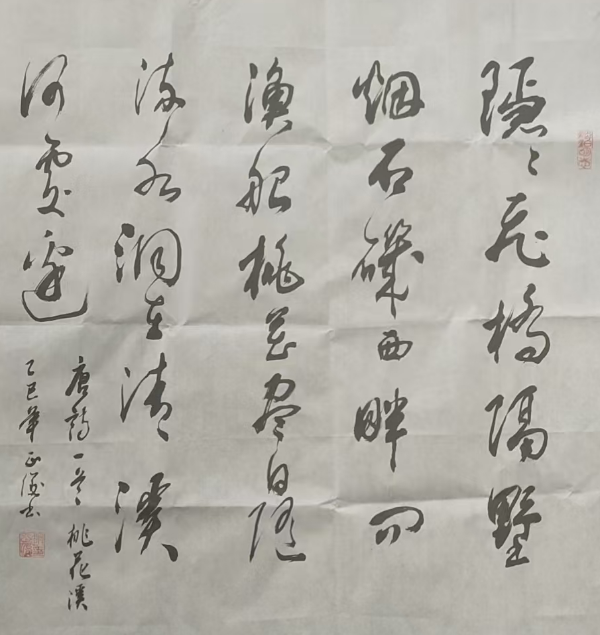 隱々飛橋隔野
烟石磯西畔問
漁船桃花盡日隨
流水洞在清溪
何處邊
唐詩一首 桃花溪
乙巳年 正 書